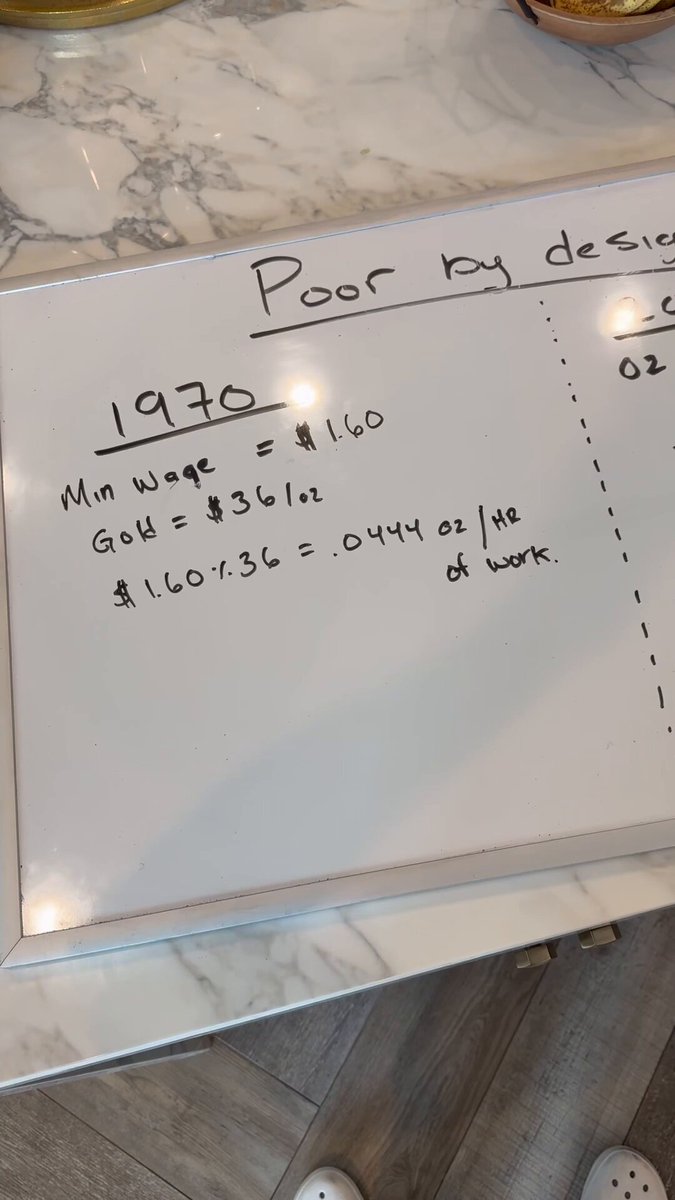 Poor by desig
1970
Min Wage = $1.60
Gold = $36/oz
$1.60%36 = .0444 oz/HR
of work.
oz